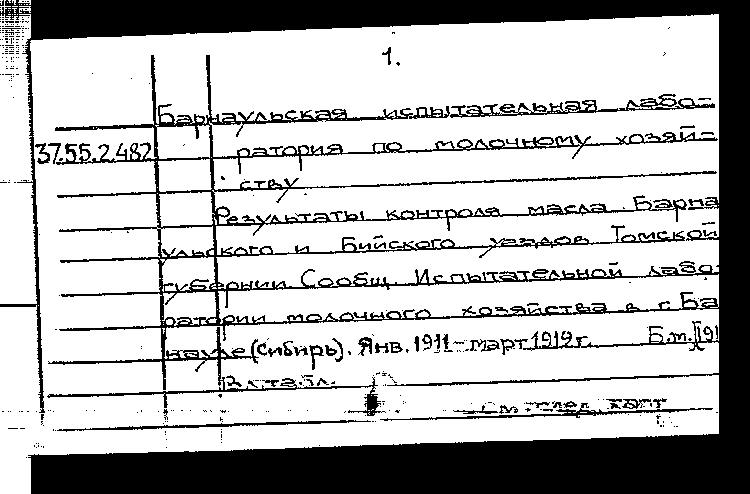 1.
Барнаульская испытательная лабо=
37.55.2.482 ратория по молочному хозяй=
ству
Результаты контроля масла Барна
ульского и Бийского уездов Томской
губернии. Сообщ. Испытательной лабо-
ратории молочного хозяйства в г. Ба
науле (Сибирь). Янв. 1911-март 1919 г. Б.м. [191
В л. табл.
См. след. карт